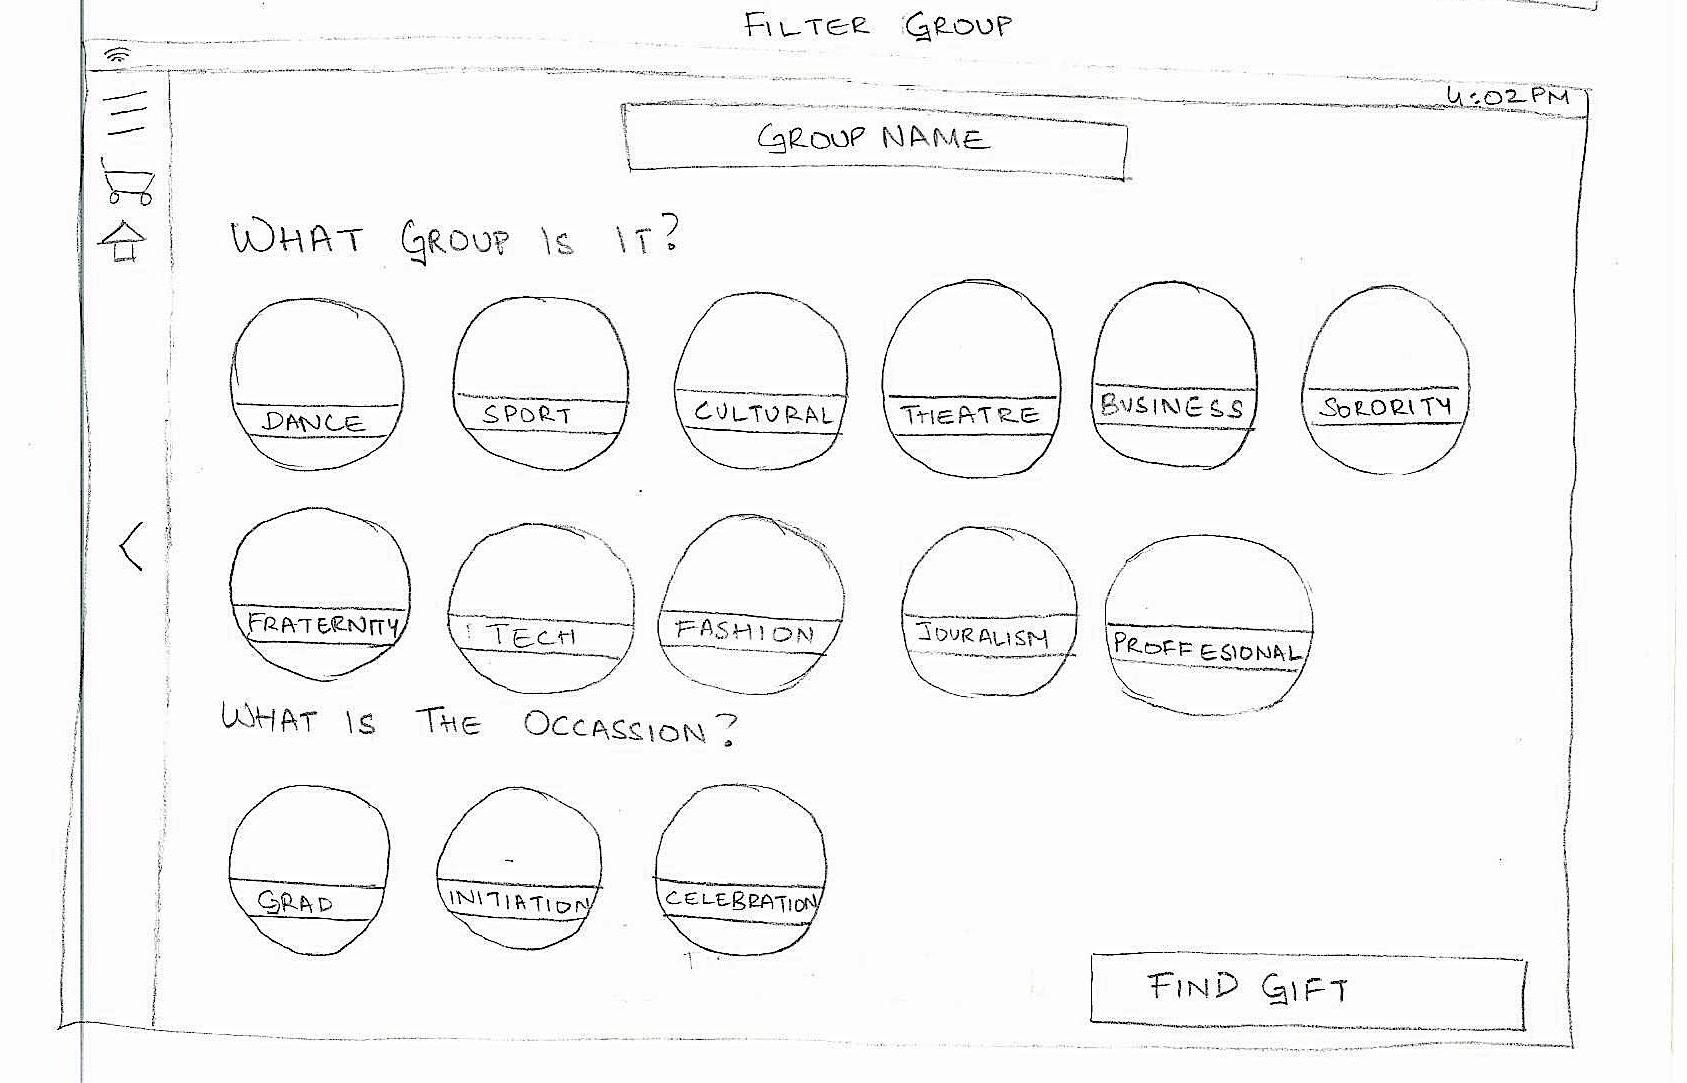 FILTER GROUP
4:02 PM
GROUP NAME
WHAT GROUP IS IT?
DANCE SPORT CULTURAL THEATRE BUSINESS SORORITY
FRATERNITY TECH FASHION JOURALISM PROFFESIONAL
WHAT IS THE OCCASSION?
GRAD INITIATION CELEBRATION
FIND GIFT